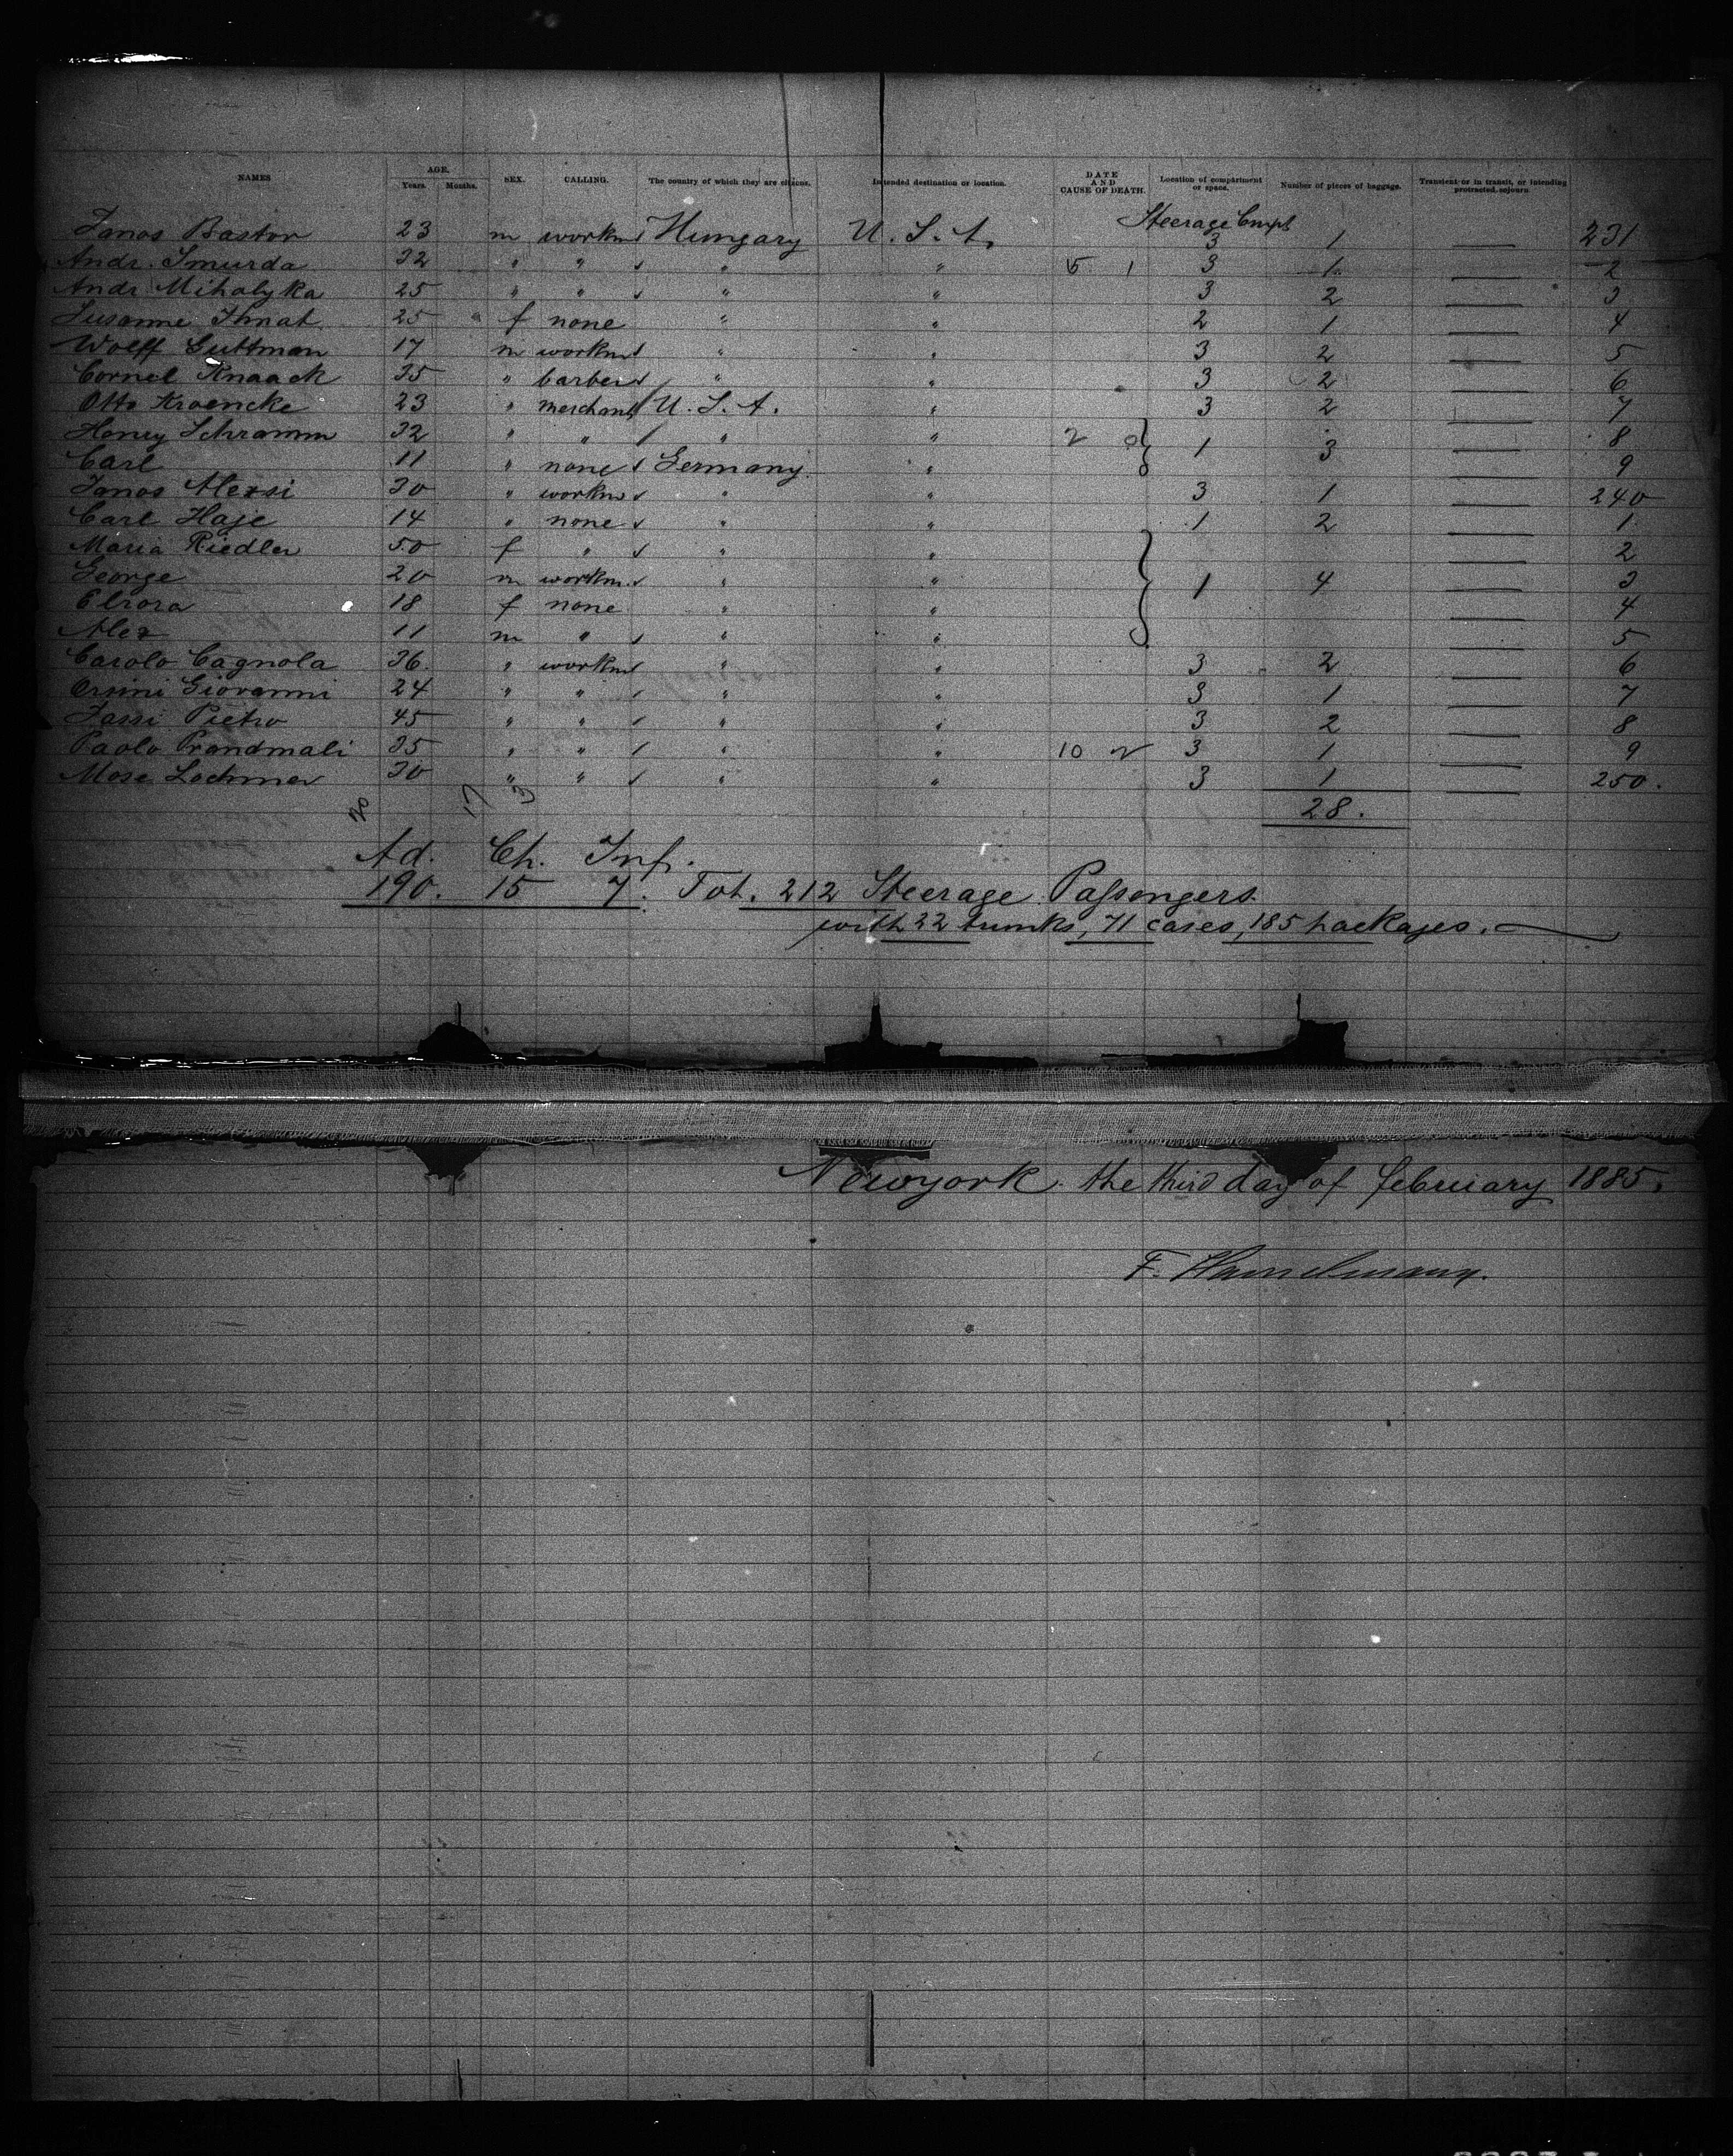 NAMES AGE. Years. Months. SEX. CALLING. The country of which they are citizens. Intended destination or location. DATE AND CAUSE OF DEATH. Location of compartment or space. Number of pieces of baggage. Transient or in transit, or intending protracted sojourn
Steerage Compt
Janos Bastor 23 m workm Hungary U. S. A. 3 1 — 231
Andr. Smurda 32 " " " " 5 1 3 1 — 2
Andr. Mihalyka 25 " " " " 3 2 — 3
Susanne Ihnat 25 f none " " 2 1 — 4
Wolff Guttman 17 m workm " " 3 2 — 5
Cornel Knaack 35 " barber " " 3 2 — 6
Otto Kroencke 23 " merchant U. S. A. " 3 2 — 7
Henry Schramm 32 " " " " 2 0 1 3 — 8
Carl 11 " none Germany " 9
Janos Alexsi 30 " workm " " 3 1 — 240
Carl Haje 14 " none " " 1 2 — 1
Maria Riedler 50 f " " " — 2
George 20 m workm. " " 1 4 — 3
Elrora 18 f none " " — 4
Alex 11 m " " " — 5
Carolo Cagnola 36 " workm " " 3 2 — 6
Orsini Giovanni 24 " " " " 3 1 — 7
Tassi Pietro 45 " " " " 3 2 — 8
Paolo Prandmali 35 " " " " 10 2 3 1 — 9
Mose Lochmer 30 " " " " 3 1 — 250.
20 17 3 28.
Ad. Ch. Inf.
190. 15 7. Tot. 212 Steerage Passengers
with 22 trunks, 71 cases, 185 packages.
Newyork the third day of february 1885.
F. Hamelmann.